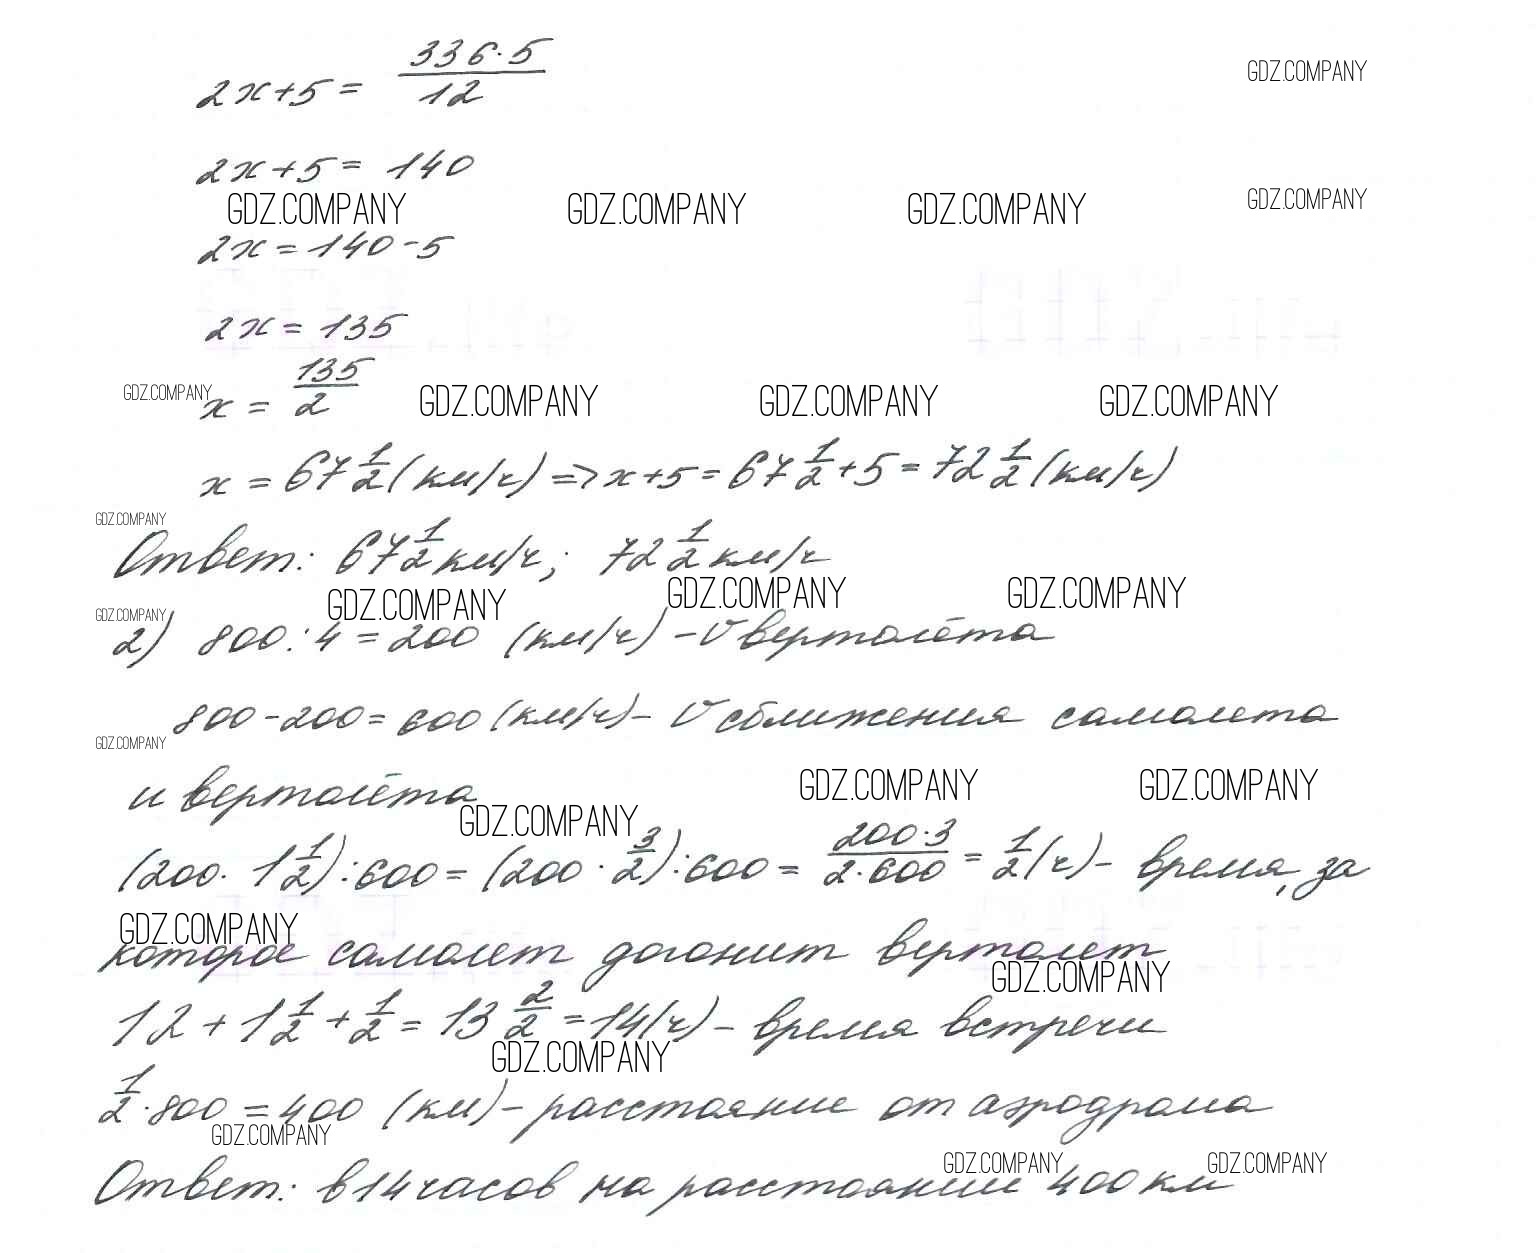 2x+5 = 336·5/12
GDZ.COMPANY
2x+5 = 140
GDZ.COMPANY GDZ.COMPANY GDZ.COMPANY GDZ.COMPANY
2x = 140-5
2x = 135
x = 135/2
GDZ.COMPANY GDZ.COMPANY GDZ.COMPANY GDZ.COMPANY
x = 67 1/2 (км/ч) => x+5 = 67 1/2 + 5 = 72 1/2 (км/ч)
GDZ.COMPANY
Ответ: 67 1/2 км/ч; 72 1/2 км/ч
GDZ.COMPANY GDZ.COMPANY GDZ.COMPANY GDZ.COMPANY
2) 800:4 = 200 (км/ч) - V вертолёта
800-200 = 600 (км/ч) - V сближения самолета
GDZ.COMPANY
и вертолёта
GDZ.COMPANY GDZ.COMPANY GDZ.COMPANY
(200 · 1 1/2) : 600 = (200 · 3/2) : 600 = 200·3/2·600 = 1/2 (ч) - время, за
GDZ.COMPANY
которое самолет догонит вертолет
GDZ.COMPANY
12 + 1 1/2 + 1/2 = 13 2/2 = 14 (ч) - время встречи
GDZ.COMPANY
1/2 · 800 = 400 (км) - расстояние от аэродрома
GDZ.COMPANY GDZ.COMPANY GDZ.COMPANY
Ответ: в 14 часов на расстоянии 400 км